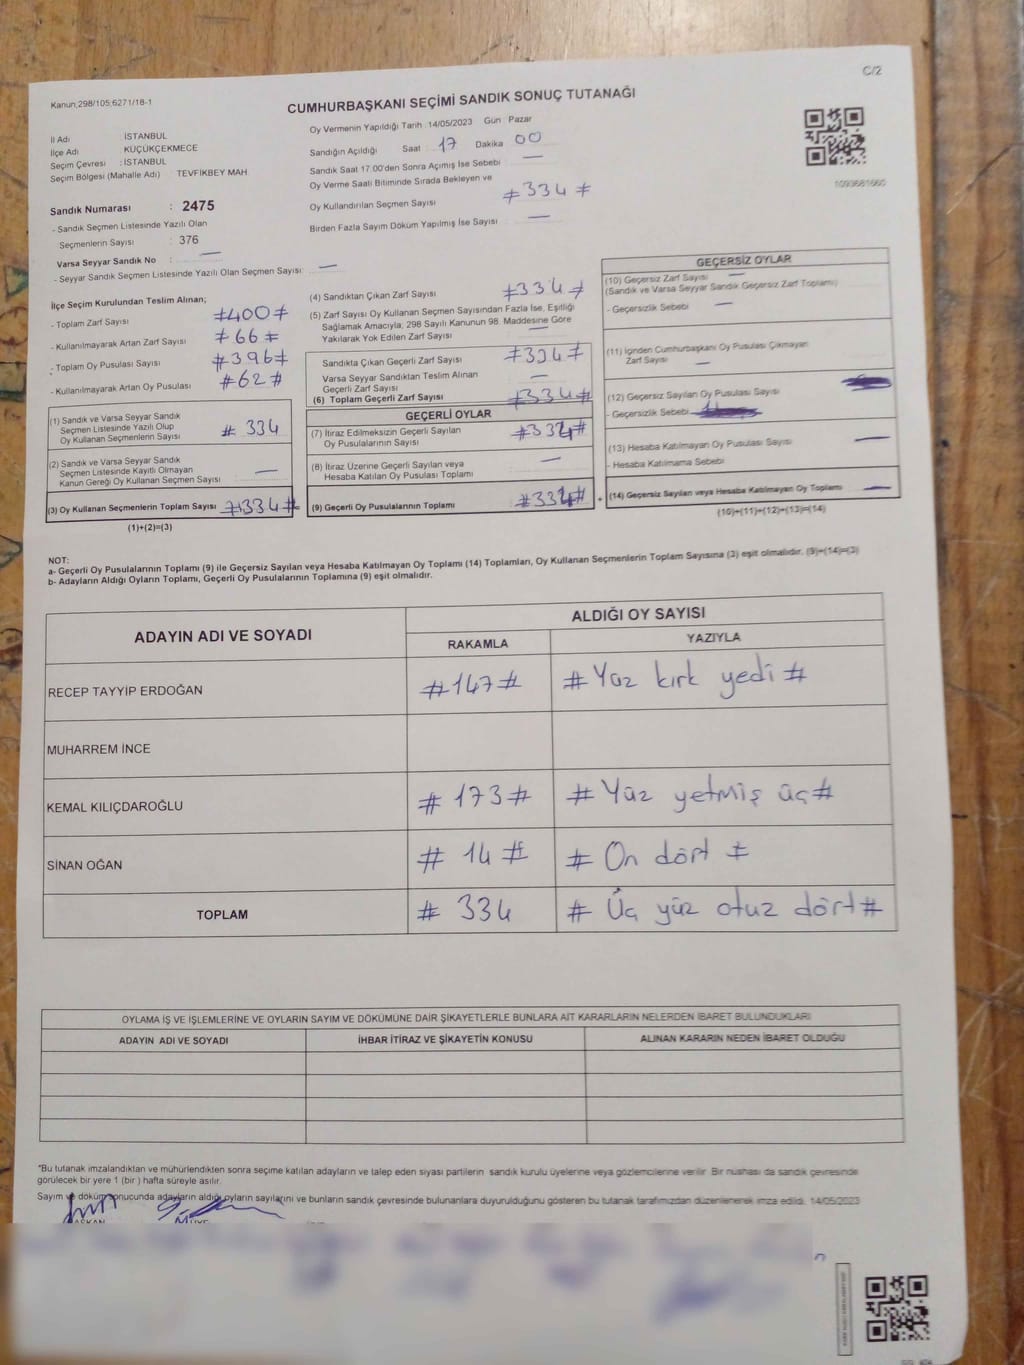 C/2
Kanun,298/105;6271/18-1
CUMHURBAŞKANI SEÇİMİ SANDIK SONUÇ TUTANAĞI
İl Adı İSTANBUL
İlçe Adı KÜÇÜKÇEKMECE
Seçim Çevresi : İSTANBUL
Seçim Bölgesi (Mahalle Adı) TEVFİKBEY MAH.
Sandık Numarası : 2475
- Sandık Seçmen Listesinde Yazılı Olan
Seçmenlerin Sayısı : 376
Varsa Seyyar Sandık No : —
- Seyyar Sandık Seçmen Listesinde Yazılı Olan Seçmen Sayısı: —
Oy Vermenin Yapıldığı Tarih :14/05/2023 Gün Pazar
Sandığın Açıldığı Saat 17 Dakika 00
Sandık Saat 17.00'den Sonra Açımış İse Sebebi —
Oy Verme Saati Bitiminde Sırada Bekleyen ve
Oy Kullandırılan Seçmen Sayısı # 334 #
Birden Fazla Sayım Döküm Yapılmış İse Sayısı —
1093681660
İlçe Seçim Kurulundan Teslim Alınan;
- Toplam Zarf Sayısı #400#
- Kullanılmayarak Artan Zarf Sayısı # 66 #
- Toplam Oy Pusulası Sayısı #396#
- Kullanılmayarak Artan Oy Pusulası #62#
(1) Sandık ve Varsa Seyyar Sandık
Seçmen Listesinde Yazılı Olup
Oy Kullanan Seçmenlerin Sayısı # 334
(2) Sandık ve Varsa Seyyar Sandık
Seçmen Listesinde Kayıtlı Olmayan
Kanun Gereği Oy Kullanan Seçmen Sayısı —
(3) Oy Kullanan Seçmenlerin Toplam Sayısı #334#
(1)+(2)=(3)
(4) Sandıktan Çıkan Zarf Sayısı #334#
(5) Zarf Sayısı Oy Kullanan Seçmen Sayısından Fazla İse, Eşitliği
Sağlamak Amacıyla; 298 Sayılı Kanunun 98. Maddesine Göre
Yakılarak Yok Edilen Zarf Sayısı —
Sandıkta Çıkan Geçerli Zarf Sayısı #334#
Varsa Seyyar Sandıktan Teslim Alınan
Geçerli Zarf Sayısı —
(6) Toplam Geçerli Zarf Sayısı #334#
GEÇERLİ OYLAR
(7) İtiraz Edilmeksizin Geçerli Sayılan
Oy Pusulalarının Sayısı #334#
(8) İtiraz Üzerine Geçerli Sayılan veya
Hesaba Katılan Oy Pusulası Toplamı —
(9) Geçerli Oy Pusulalarının Toplamı #334#
GEÇERSİZ OYLAR
(10) Geçersiz Zarf Sayısı —
(Sandık ve Varsa Seyyar Sandık Geçersiz Zarf Toplamı)
- Geçersizlik Sebebi —
(11) İçinden Cumhurbaşkanı Oy Pusulası Çıkmayan
Zarf Sayısı —
(12) Geçersiz Sayılan Oy Pusulası Sayısı
- Geçersizlik Sebebi
(13) Hesaba Katılmayan Oy Pusulası Sayısı —
- Hesaba Katılmama Sebebi
(14) Geçersiz Sayılan veya Hesaba Katılmayan Oy Toplamı —
(10)+(11)+(12)+(13)=(14)
NOT:
a- Geçerli Oy Pusulalarının Toplamı (9) ile Geçersiz Sayılan veya Hesaba Katılmayan Oy Toplamı (14) Toplamları, Oy Kullanan Seçmenlerin Toplam Sayısına (3) eşit olmalıdır. (9)+(14)=(3)
b- Adayların Aldığı Oyların Toplamı, Geçerli Oy Pusulalarının Toplamına (9) eşit olmalıdır.
ADAYIN ADI VE SOYADI
ALDIĞI OY SAYISI
RAKAMLA YAZIYLA
RECEP TAYYİP ERDOĞAN #147# # Yüz kırk yedi #
MUHARREM İNCE
KEMAL KILIÇDAROĞLU # 173# # Yüz yetmiş üç#
SİNAN OĞAN # 14 # # On dört #
TOPLAM # 334 # Üç yüz otuz dört#
OYLAMA İŞ VE İŞLEMLERİNE VE OYLARIN SAYIM VE DÖKÜMÜNE DAİR ŞİKAYETLERLE BUNLARA AİT KARARLARIN NELERDEN İBARET BULUNDUKLARI
ADAYIN ADI VE SOYADI İHBAR İTİRAZ VE ŞİKAYETİN KONUSU ALINAN KARARIN NEDEN İBARET OLDUĞU
*Bu tutanak imzalandıktan ve mühürlendikten sonra seçime katılan adayların ve talep eden siyasi partilerin sandık kurulu üyelerine veya gözlemcilerine verilir. Bir nüshası da sandık çevresinde
görülecek bir yere 1 (bir) hafta süreyle asılır.
Sayım ve döküm sonucunda adayların aldığı oyların sayılarını ve bunların sandık çevresinde bulunanlara duyurulduğunu gösteren bu tutanak tarafımızdan düzenlenerek imza edildi. 14/05/2023